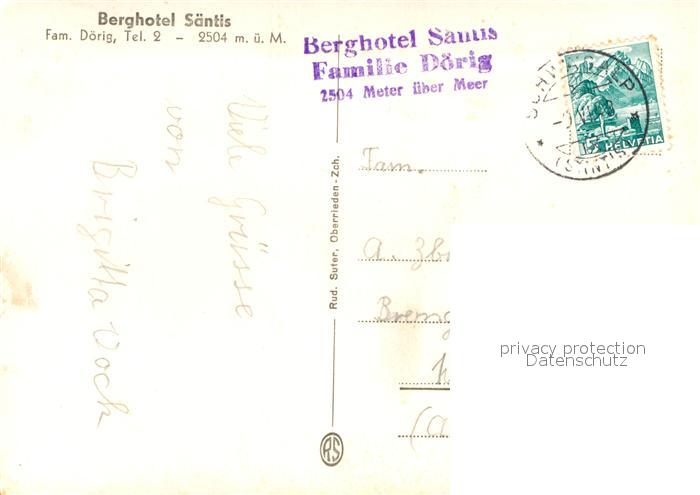 Berghotel Säntis
Fam. Dörig, Tel. 2 – 2504 m. ü. M.
Berghotel Säntis
Familie Dörig
2504 Meter über Meer
HELVETIA
(SÄNTIS)
Viele Grüsse
von
Brigitta Voch
Rud. Suter, Oberrieden-Zch.
RS
Fam.
A. Zb
Brem
(A
privacy protection
Datenschutz